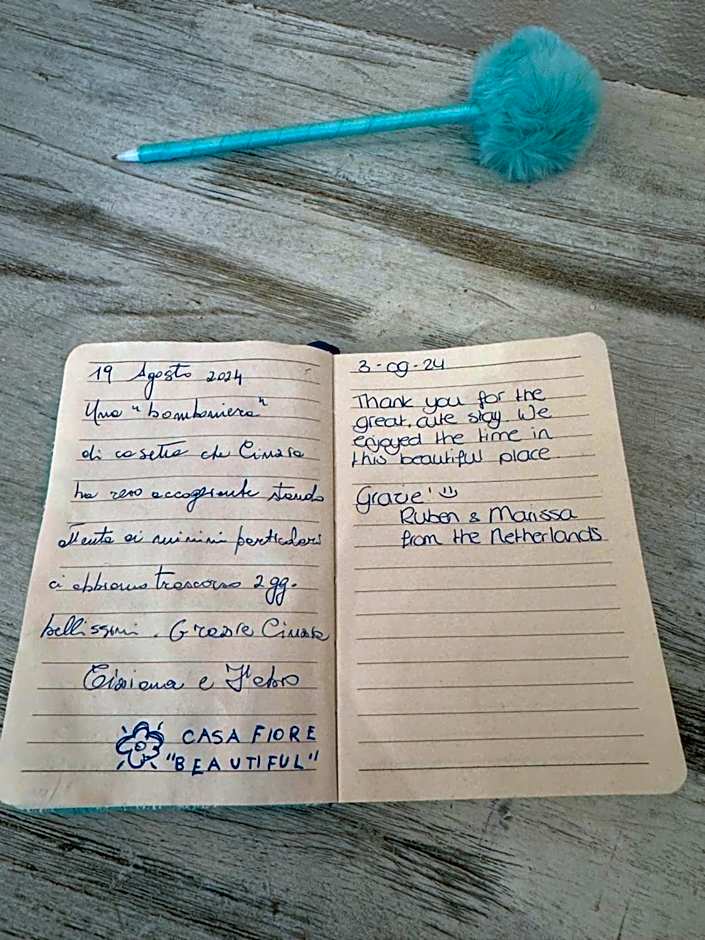 19 Agosto 2024
Una "bomboniera"
di casetta che Cinzia
ha reso accogliente stando
attenta ai minimi particolari
ci abbiamo trascorso 2 gg.
bellissimi. Grazie Cinzia
Tiziana e
CASA FIORE
"BEAUTIFUL"
3-09-24
Thank you for the
great, cute stay. We
enjoyed the time in
this beautiful place
Grazie! ☺
Ruben & Marissa
from the Netherlands.